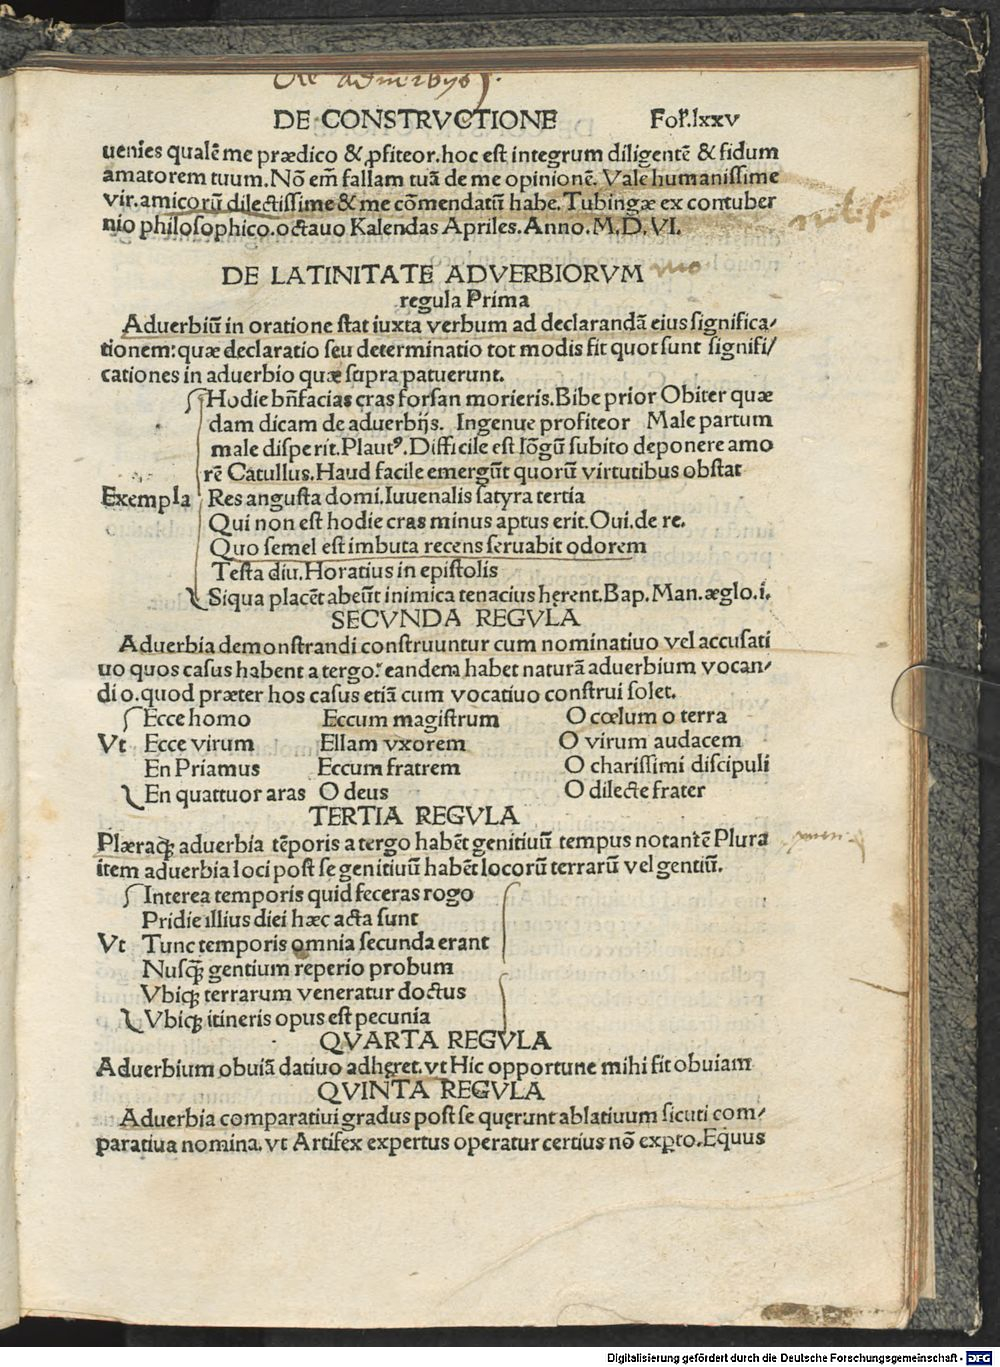 De adverbijs.
DE CONSTRVCTIONE Fol.lxxv
uenies qualē me prædico & ꝓfiteor.hoc est integrum diligentē & fidum
amatorem tuum.Nō em̄ fallam tuā de me opinionē. Vale humanissime
vir.amicorū dilectissime & me cōmendatū habe.Tubingæ ex contuber
nio philosophico.octauo Kalendas Apriles.Anno.M.D.VI.
DE LATINITATE ADVERBIORVM
regula Prima
Aduerbiū in oratione stat iuxta verbum ad declarandā eius significa⸗
tionem:quæ declaratio seu determinatio tot modis fit quot sunt signifi⸗
cationes in aduerbio quæ supra patuerunt.
Hodie bn̄facias cras forsan morieris.Bibe prior Obiter quæ
dam dicam de aduerbijs. Ingenue profiteor Male partum
male disperit.Plautꝰ.Difficile est lōgū subito deponere amo
rē Catullus.Haud facile emergūt quorū virtutibus obstat
Exempla Res angusta domi.Iuuenalis satyra tertia
Qui non est hodie cras minus aptus erit.Oui.de re.
Quo semel est imbuta recens seruabit odorem
Testa diu.Horatius in epistolis
Siqua placēt abeūt inimica tenacius hęrent.Bap.Man.æglo.i.
SECVNDA REGVLA
Aduerbia demonstrandi construuntur cum nominatiuo vel accusati
uo quos casus habent a tergo: eandem habet naturā aduerbium vocan⸗
di o.quod præter hos casus etiā cum vocatiuo construi solet.
Ecce homo Eccum magistrum O cœlum o terra
Vt Ecce virum Ellam vxorem O virum audacem
En Priamus Eccum fratrem O charissimi discipuli
En quattuor aras O deus O dilecte frater
TERTIA REGVLA
Plæraqꝫ aduerbia tēporis a tergo habēt genitiuū tempus notantē Plura
item aduerbia loci post se genitiuū habēt locorū terrarū vel gentiū.
Interea temporis quid feceras rogo
Pridie illius diei hæc acta sunt
Vt Tunc temporis omnia secunda erant
Nusqꝫ gentium reperio probum
Vbiqꝫ terrarum veneratur doctus
Vbiqꝫ itineris opus est pecunia
QVARTA REGVLA
Aduerbium obuiā datiuo adhęret.vt Hic opportune mihi fit obuiam
QVINTA REGVLA
Aduerbia comparatiui gradus post se quęrunt ablatiuum sicuti com⸗
paratiua nomina.vt Artifex expertus operatur certius nō exꝑto.Equus
Digitalisierung gefördert durch die Deutsche Forschungsgemeinschaft - DFG